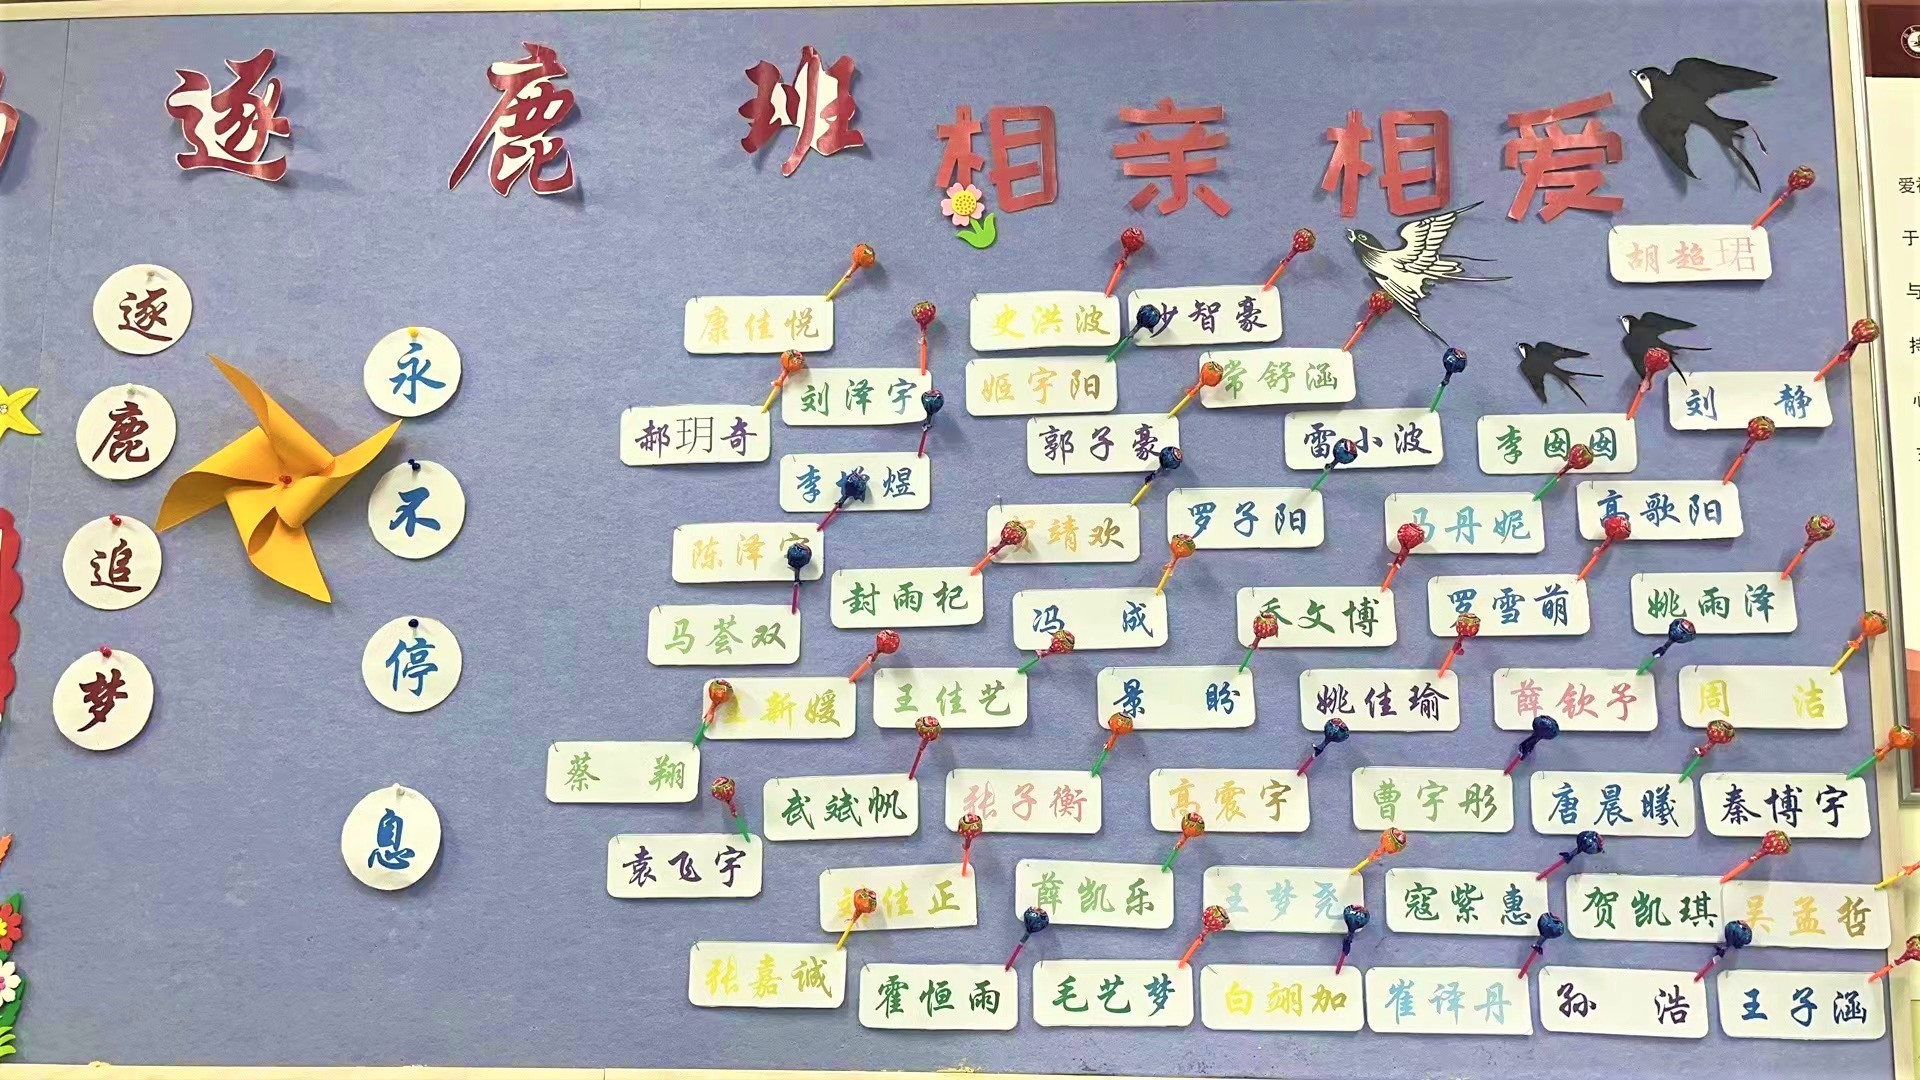 逐鹿班
相亲相爱
逐鹿追梦
永不停息
胡超珺
康佳悦
史洪波
智豪
刘泽宇
姬宇阳
常舒涵
刘静
郝玥奇
郭子豪
雷小波
李囡囡
李 煜
罗子阳
马丹妮
高歌阳
陈泽宇
靖欢
封雨杞
冯成
乔文博
罗雪萌
姚雨泽
马荟双
新媛
王佳艺
景盼
姚佳瑜
薛钦予
周洁
蔡翔
武斌帆
张子衡
高震宇
曹宇彤
唐晨曦
秦博宇
袁飞宇
刘佳正
薛凯乐
王梦尧
寇紫惠
贺凯琪
吴孟哲
张嘉诚
霍恒雨
毛艺梦
白翊加
崔译丹
孙浩
王子涵
爱
于
与
持